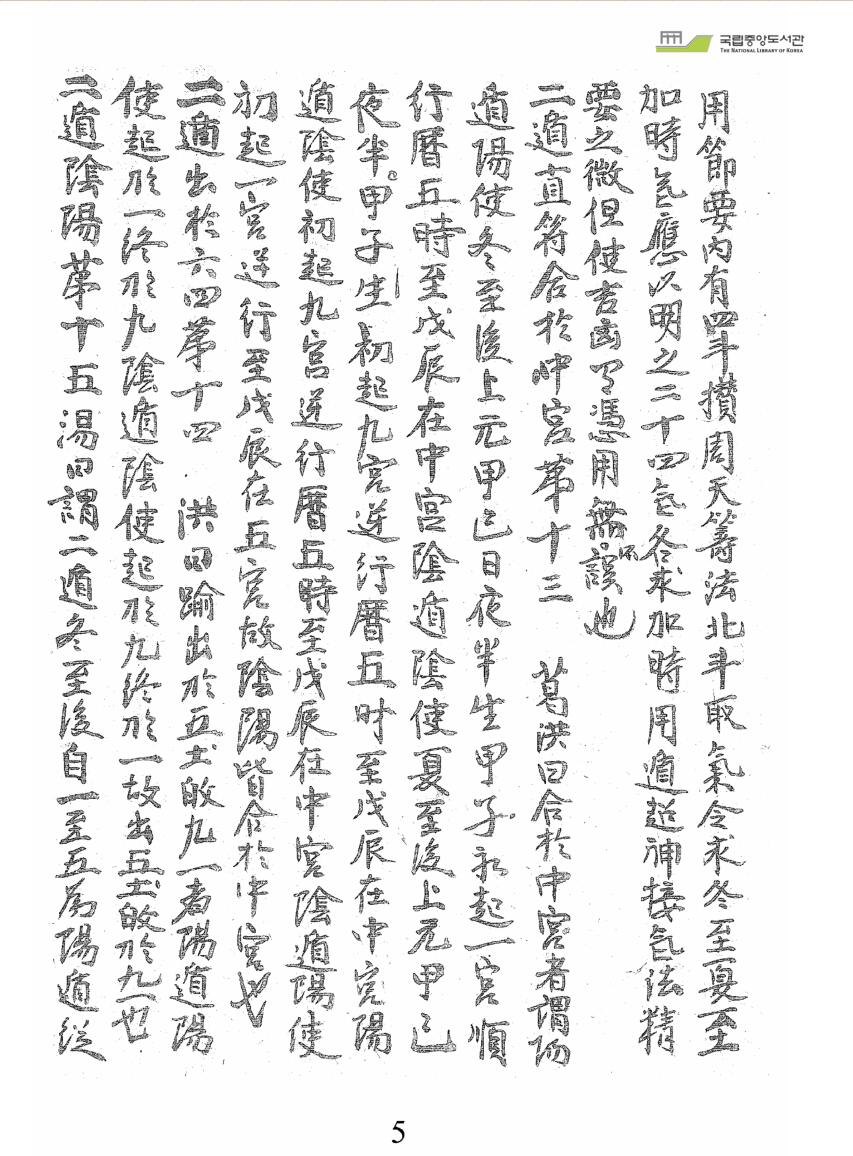 국립중앙도서관
THE NATIONAL LIBRARY OF KOREA
用節要內有四斗攅周天籌法北斗取氣令求冬至夏至
加時气應以明之二十四气冬求加時用遁起神接气法精
要之微但使吉凶可憑用無誤也
二遁直符合於中宮第十三 葛洪曰合於中宮者謂陽
遁陽使冬至後上元甲己日夜半生甲子初起一宮順
行曆五時至戊辰在中宮陰遁陰使夏至後上元甲己
夜半甲子生初起九宮逆行曆五时至戊辰在中宮陽
遁陰使初起九宮逆行曆五時至戊辰在中宮陰遁陽使
初起一宮逆行至戊辰在五宮故陰陽皆合於中宮也
二遁出於六四第十四 洪曰踰出於五土故九一者陽遁陽
使起於一終於九陰遁陰使起於九終於一故出五土故於九一也
二遁陰陽第十五湯曰謂二遁冬至後自一至五為陽遁從
5